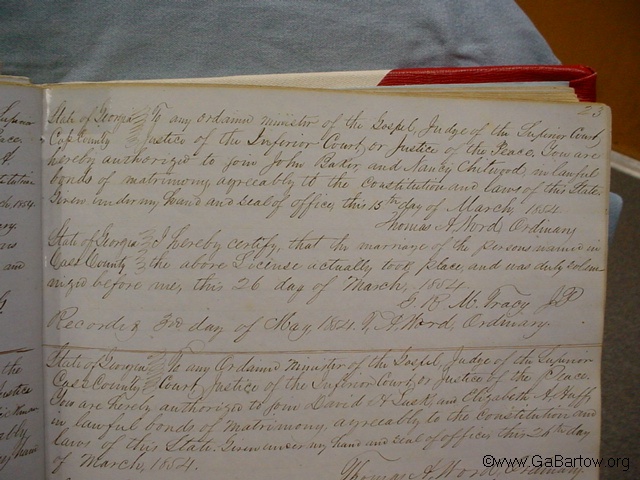 23
State of Georgia To any ordaind minister of the Gospel, Judge of the Superior Court,
Cass County Justice of the Inferior Court, or Justice of the Peace. You are
hereby authorized to join John Baker, and Nancy Chitwood, in lawful
bonds of matrimony, agreeably to the constitution and laws of this State.
Given under my hand and seal of office, this 15th day of March, 1854.
Thomas A Word, Ordinary
State of Georgia I hereby certify, that the marriage of the persons named in
Cass County the above License actually took place, and was duly solem
nized before me, this 26 day of March, 1854
M. Tracy J.P.
Recorded day of May, 1854. T. A Word, Ordinary.
State of Georgia To any Ordaind minister of the Gospel, Judge of the Superior
Cass County Court, Justice of the Inferior Court, or Justice of the Peace.
You are hereby authorized to join David H Lusk, and Elizabeth A. Huff
in lawful bonds of matrimony, agreeably to the constitution and
laws of this State. Given under my hand and seal of office this 24th day
of March, 1854.
Thomas A. Word, Ordinary.
©www.GaBartow.org